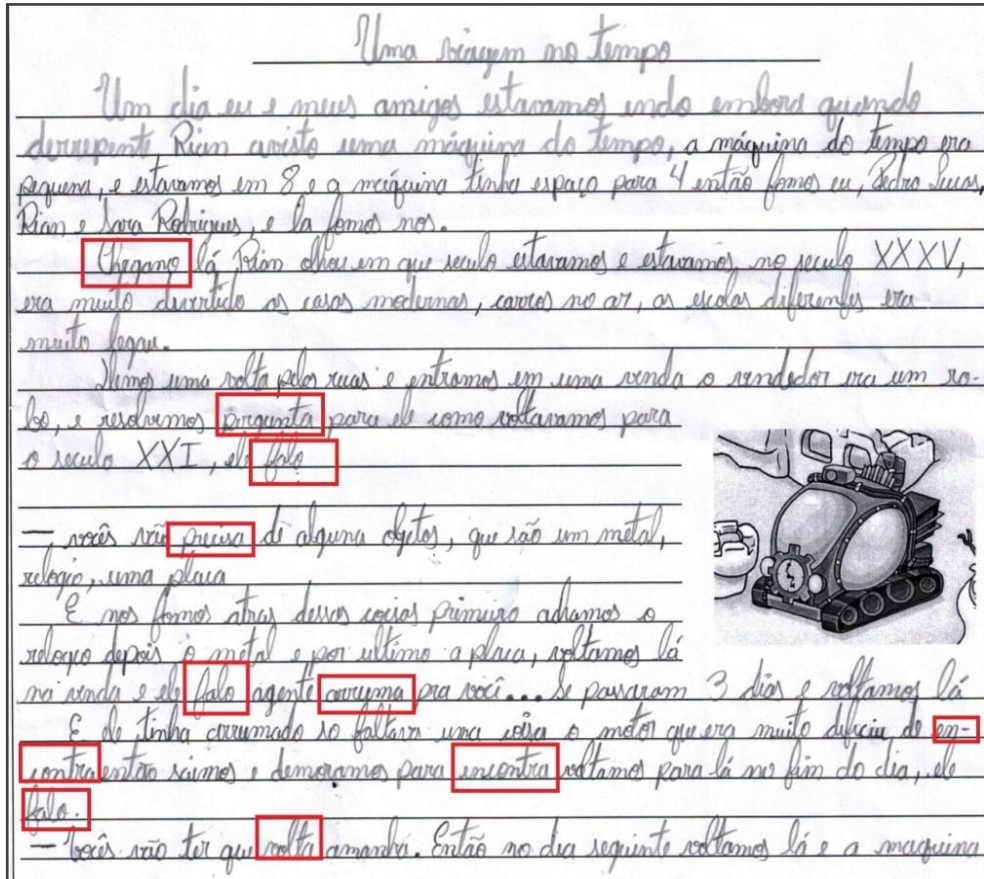 Uma viagem no tempo
Um dia eu e meus amigos estavamos indo embora quando
derrepente Rian avisto uma máquina do tempo, a máquina do tempo era
pequena, e estavamos em 8 e a máquina tinha espaço para 4 então fomos eu, Pedro Lucas,
Rian e Sara Rodrigues, e la fomos nos.
Chegano lá, Rian olhou em que seculo estavamos e estavamos, no seculo XXXV,
era muito divertido as casas modernas, carros no ar, as escolas diferentes era
muito legau.
Demos uma volta pelas ruas e entramos em uma venda o vendedor era um ro-
bo, e resolvemos pergunta para ele como voltavamos para
o seculo XXI, ele falo
— vocês vão precisa de alguns objetos, que são um metal,
relogio, uma placa
E nos fomos atras dessas coisas primeiro achamos o
relogio depois o metal e por ultimo a placa, voltamos lá
na venda e ele falo agente arruma pra você... Se passaram 3 dias e voltamos lá
E ele tinha arrumado so faltava uma coisa o motor que era muito dificiu de en-
contra então saimos e demoramos para encontra voltamos para lá no fim do dia, ele
falo.
— Vocês vão ter que volta amanhã. Então no dia seguinte voltamos lá e a maquina